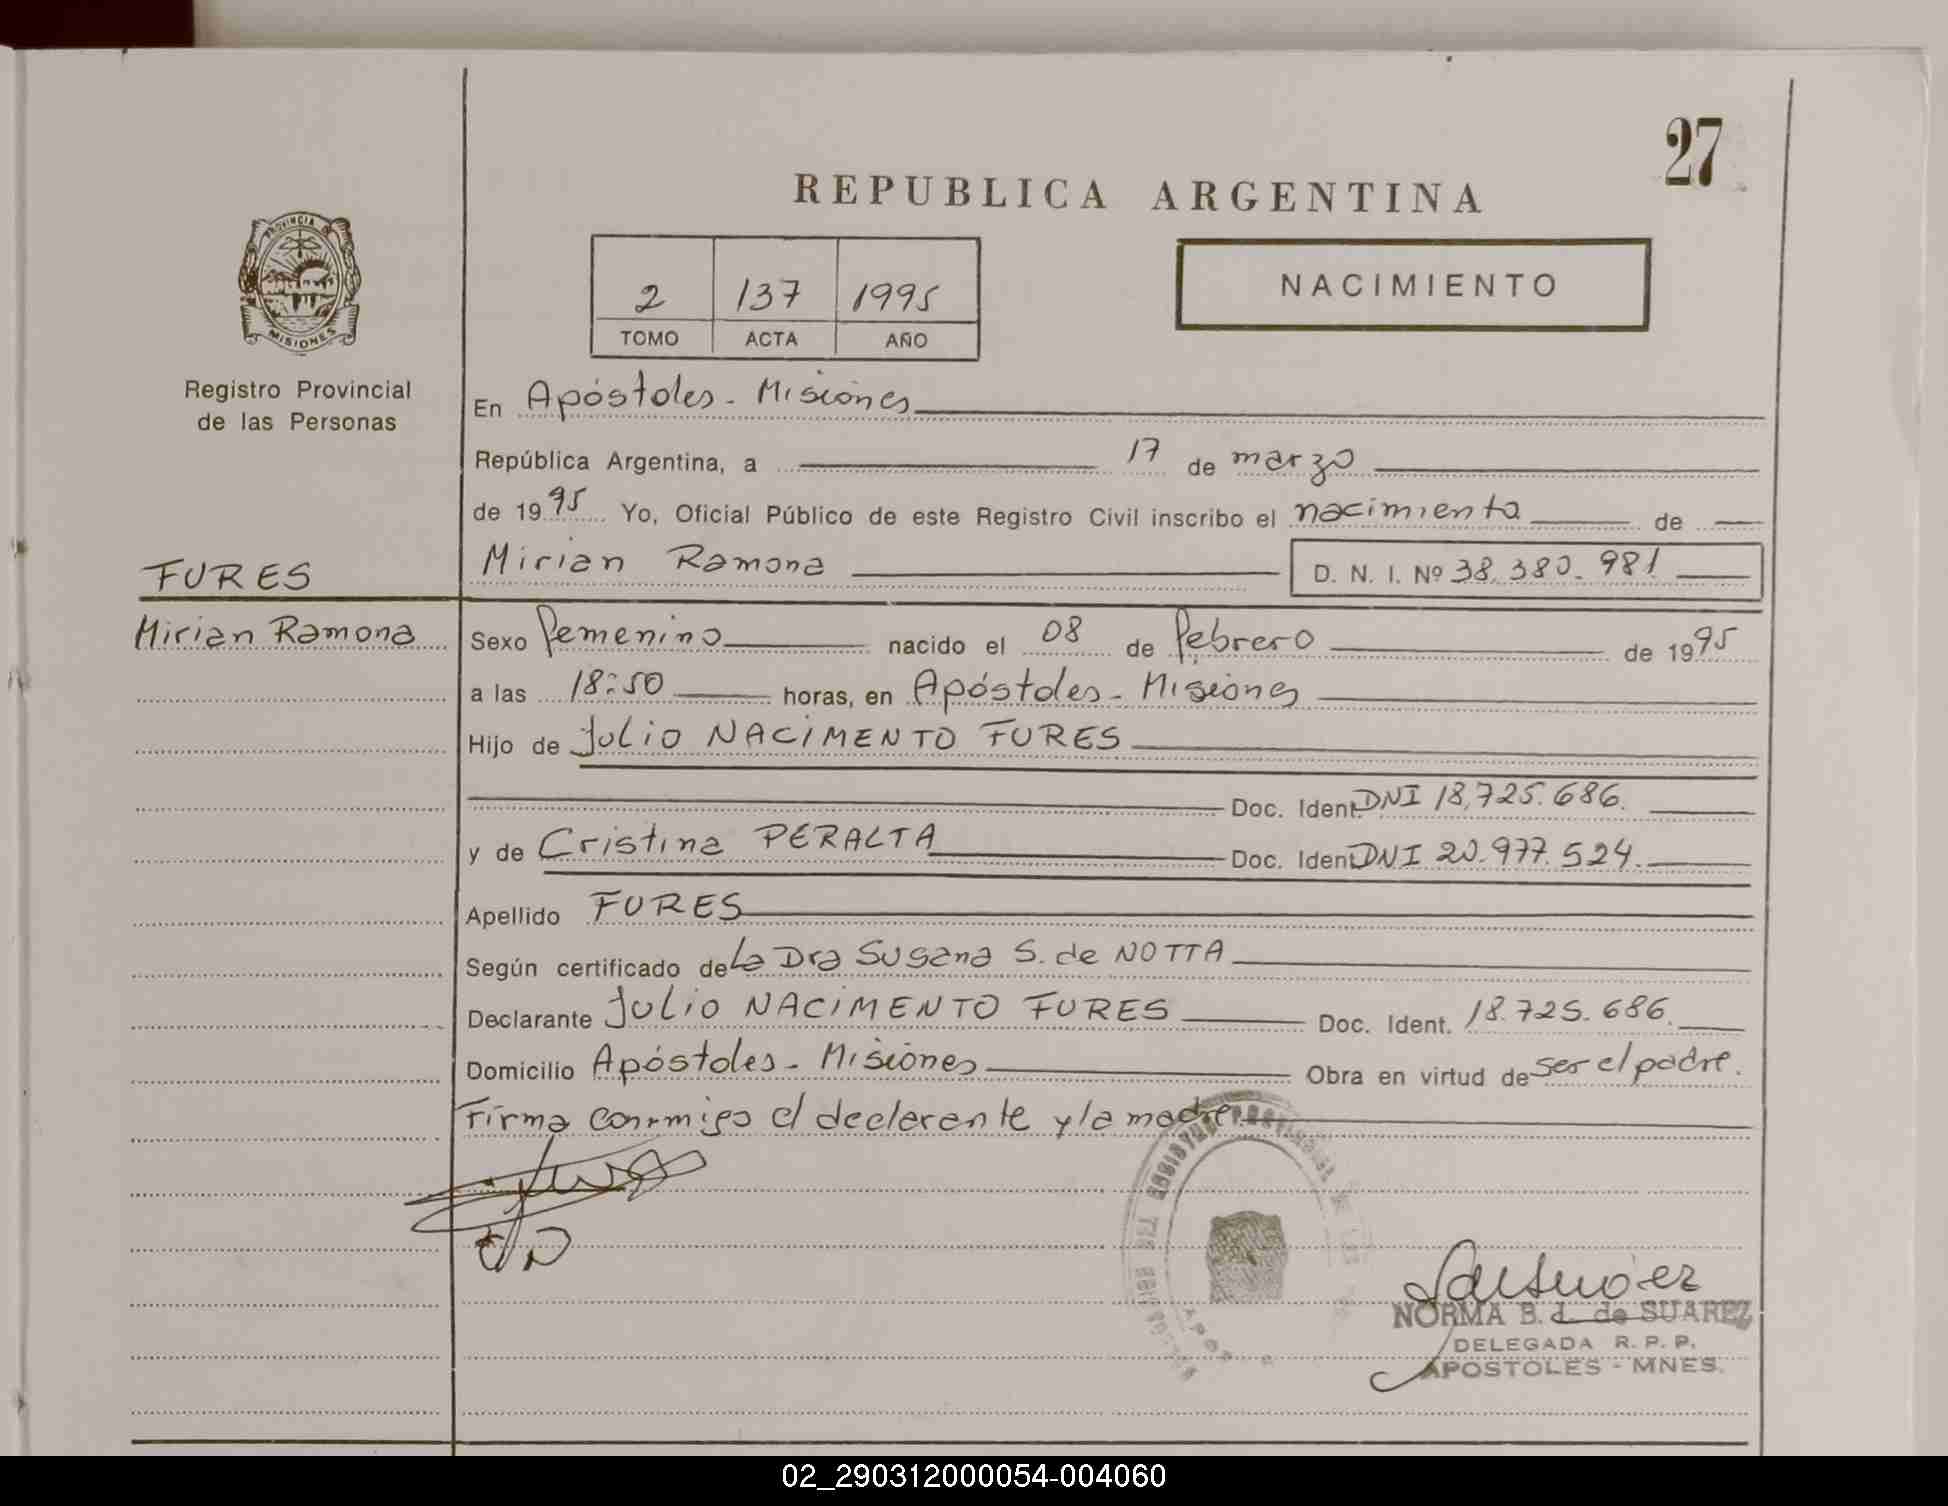 27
REPUBLICA ARGENTINA
PROVINCIA DE
MISIONES
2 137 1995
TOMO ACTA AÑO
NACIMIENTO
Registro Provincial
de las Personas
En Apóstoles - Misiones
República Argentina, a 17 de marzo
de 1995 Yo, Oficial Público de este Registro Civil inscribo el nacimiento de
FURES
Mirian Ramona D. N. I. Nº 38.380.981
Mirian Ramona
Sexo femenino nacido el 08 de febrero de 1995
a las 18:50 horas, en Apóstoles - Misiones
Hijo de Julio NACIMENTO FURES
Doc. Ident. DNI 18.725.686.
y de Cristina PERALTA Doc. Ident. DNI 20.977.524.
Apellido FURES
Según certificado de La Dra Susana S. de NOTTA
Declarante Julio NACIMENTO FURES Doc. Ident. 18.725.686.
Domicilio Apóstoles - Misiones Obra en virtud de ser el padre.
Firma conmigo el declarante y la madre
REGISTRO PROVINCIAL DE LAS
NORMA B. L. de SUAREZ
DELEGADA R. P. P.
APOSTOLES - MNES.
02_290312000054-004060